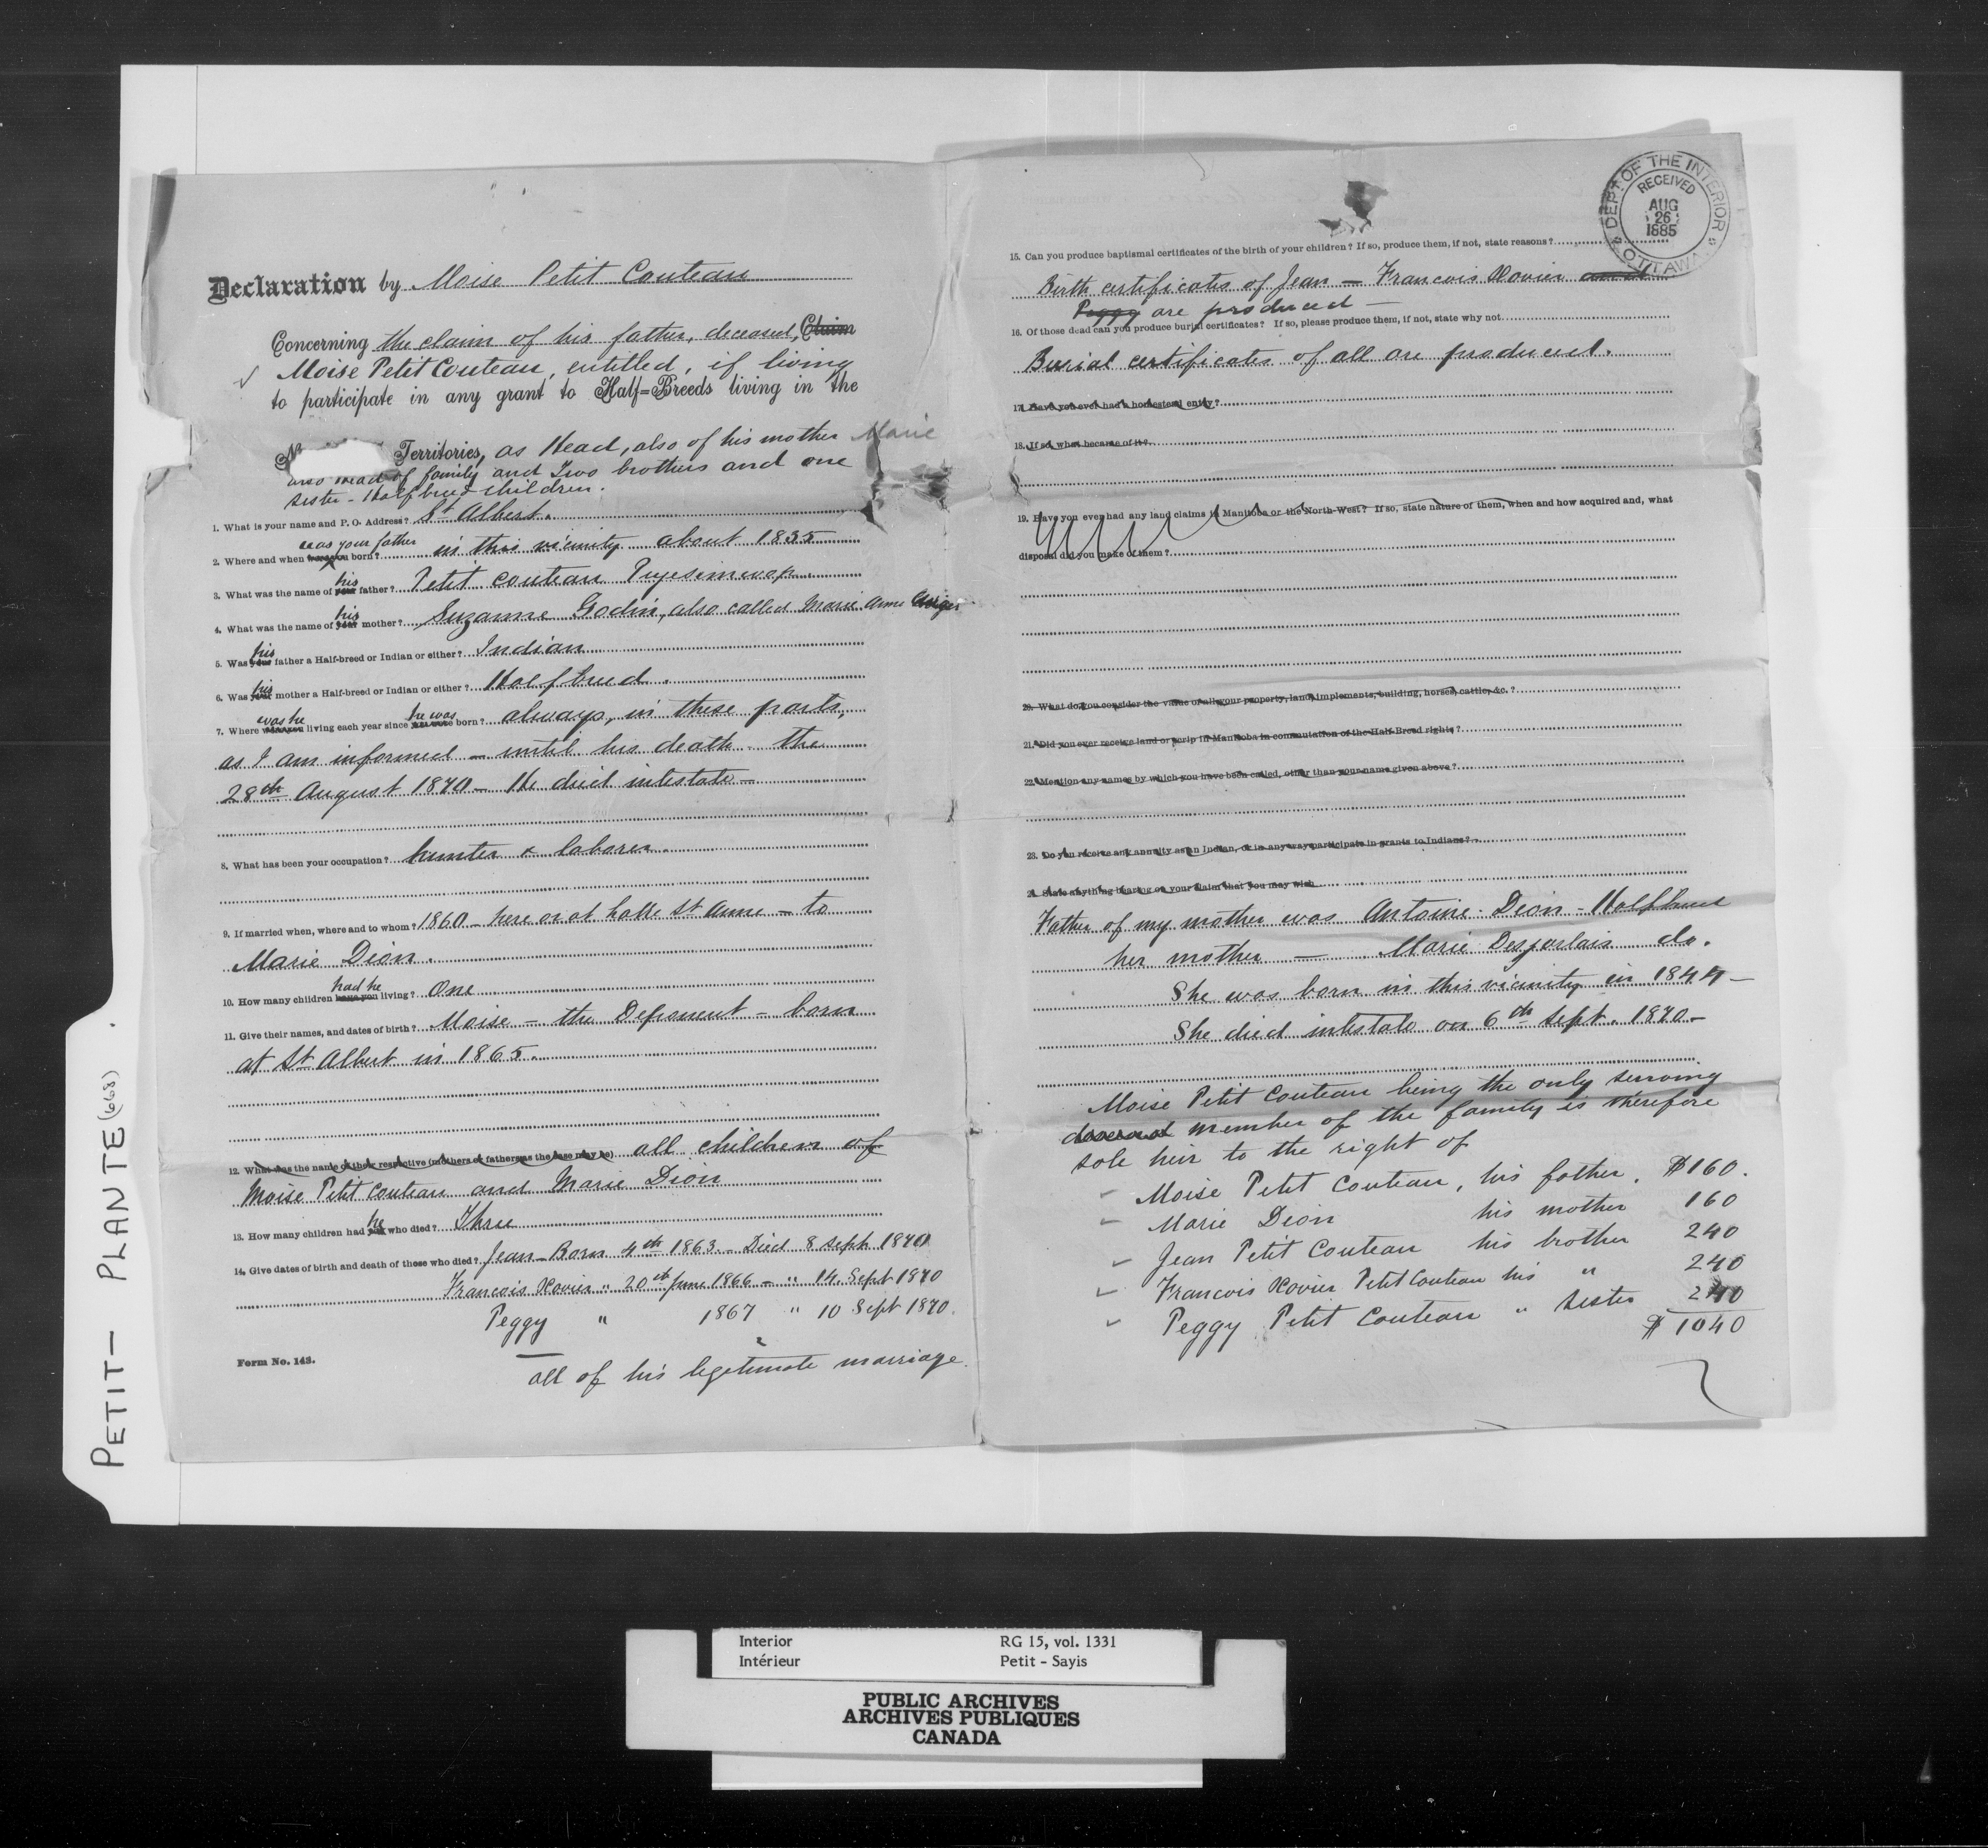 Declaration by Moise Petit Couteau
Concerning the claim of his father, deceased, Claim
Moise Petit Couteau, entitled, if living
to participate in any grant to Half=Breeds living in the
Territories, as Head, also of his mother Marie
also Head of family and Two brothers and one
sister - Half breed children.
1. What is your name and P. O. Address? St Albert.
was your father
2. Where and when born? in this vicinity about 1835
his
3. What was the name of your father? Petit Couteau
his
4. What was the name of your mother? Suzanne Godin, also called Marie Anne
his
5. Was your father a Half-breed or Indian or either? Indian
his
6. Was your mother a Half-breed or Indian or either? Half breed.
was he he was
7. Where were you living each year since you were born? always, in these parts,
as I am informed - until his death the
28th August 1870 - He died intestate -
8. What has been your occupation? hunter & laborer.
9. If married when, where and to whom? 1860 - here or at Lake St Anne - to
Marie Dion.
had he
10. How many children have you living? One
11. Give their names, and dates of birth? Moise - the Deponent - born
at St Albert in 1865.
12. What was the name of their respective (mothers or fathers as the case may be) all children of
Moise Petit Couteau and Marie Dion
he
13. How many children had you who died? Three
14. Give dates of birth and death of those who died? Jean - Born 4th 1863 - Died 8 Sept 1870
Francois Xavier " 20th June 1866 - " 14 Sept 1870
Peggy " 1867 " 10 Sept 1870.
Form No. 143.
all of his legitimate marriage.
DEPT OF THE INTERIOR
RECEIVED
AUG
26
1885
OTTAWA
15. Can you produce baptismal certificates of the birth of your children? If so, produce them, if not, state reasons?
Birth certificates of Jean - Francois Xavier and
Peggy are produced -
16. Of those dead can you produce burial certificates? If so, please produce them, if not, state why not
Burial certificates of all are produced.
17. Have you ever had a homestead entry?
18. If so, what became of it?
19. Have you ever had any land claims in Manitoba or the North-West? If so, state nature of them, when and how acquired and, what
disposal did you make of them?
20. What do you consider the value of all your property, land, implements, building, horses, cattle, &c.?
21. Did you ever receive land or scrip in Manitoba in commutation of the Half-Breed rights?
22. Mention any names by which you have been called, other than your name given above?
23. Do you receive any annuity as an Indian, or in any way participate in grants to Indians?
24. State anything bearing on your claim that you may wish
Father of my mother was Antoine Dion - Halfbreed
her mother - Marie Desjarlais do.
She was born in this vicinity in 1844 -
She died intestate on 6th Sept. 1870 -
Moise Petit Couteau being the only
member of the family is therefore
sole heir to the right of
Moise Petit Couteau, his father. $160.
Marie Dion his mother 160
Jean Petit Couteau his brother 240
Francois Xavier Petit Couteau his " 240
Peggy Petit Couteau " sister 240
$ 1040
PETIT - PLANTE (668)
Interior RG 15, vol. 1331
Intérieur Petit - Sayis
PUBLIC ARCHIVES
ARCHIVES PUBLIQUES
CANADA